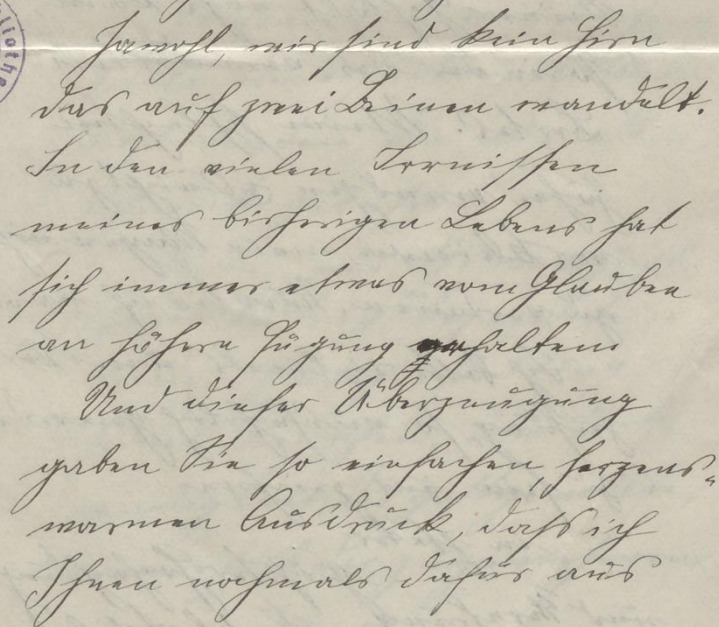 bliothe
Jawohl, wir sind kein Hirn
das auf zwei Beinen wandelt.
In den vielen
meines bisherigen Lebens hat
sich immer etwas vom Glauben
an höhere Fügung erhalten.
Und dieser Überzeugung
gaben Sie so einfachen, herzens=
warmen Ausdruck, dass ich
Ihnen nochmals dafür aus